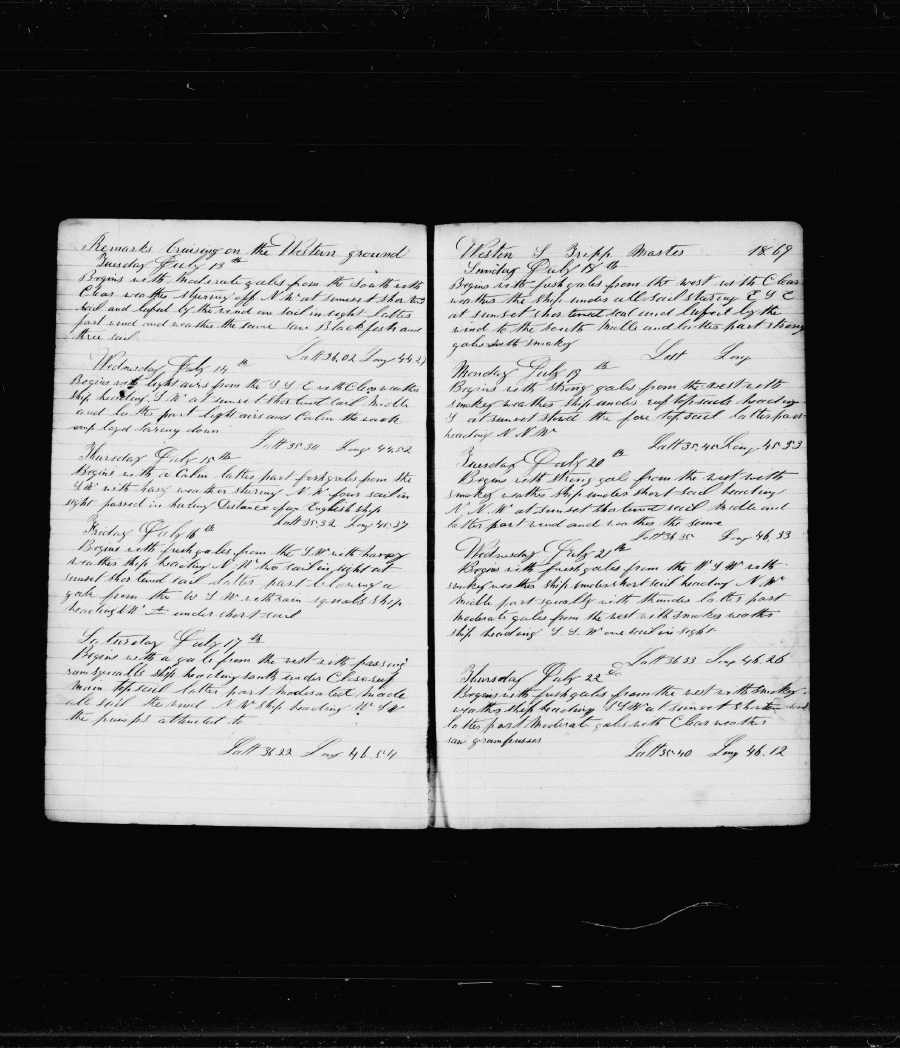 Remarks Cruising on the Western ground
Tuesday July 13th
Begins with moderate gales from the South with
Clear weather stearing off N W at sunset shortend
sail and lufed by the wind one sail in sight latter
part wind and weather the same saw Blackfish and
three sail
Latt 36.02 Long 44.2
Wednesday July 14th
Begins with light airs from the S S E with Clear weather
ship heading S W at sunset shortend sail middle
and latter part light airs and Calm the watch
employd taring down
Latt 35 30 Long 44.52
Thursday July 15th
Begins with a Calm latter part fresh gales from the
S W with hazy weather stearing N W four sail in
sight passed in hailing Distance of an English ship
Latt 35 32 Long 45.37
Friday July 16th
Begins with fresh gales from the S W with hazy
weather ship heading N W two sail in sight at
sunset shortend sail latter part blowing a
gale from the W S W with rain squalls ship
heading under short sail
Saturday July 17th
Begins with a gale from the west with passing
rain squalls ship heading south under Close reef
main top sail latter part moderated made
all sail the wind N W ship heading W S W
the pumps attended to
Latt 36 22 Long 46.54
Weston S Tripp Master 1869
Sunday July 18th
Begins with fresh gales from the west with Clear
weather the ship under all sail stearing E S E
at sunset shortend sail and lufed by the
wind to the south middle and latter part strong
gales with smokey
Latt Long
Monday July 19th
Begins with strong gales from the west with
smokey weather ship under reef top sails heading
S at sunset stowed the fore top sail latter part
heading N N W
Latt 35.40 Long 45.53
Tuesday July 20th
Begins with strong gale from the west with
smokey weather ship under short sail heading
N N W at sunset shortend sail middle and
latter part wind and weather the same
Latt 36 35 Long 46.33
Wednesday July 21th
Begins with fresh gales from the W S W with
smokey weather ship under short sail heading N W
middle part squally with thunder latter part
moderate gales from the west with smokey weather
ship heading S S W one sail in sight
Latt 36 33 Long 46.26
Thursday July 22d
Begins with fresh gales from the west with smokey
weather ship heading S S W at sunset shortend sail
latter part moderate gales with Clear weather
saw grampusses
Latt 35 40 Long 46.12